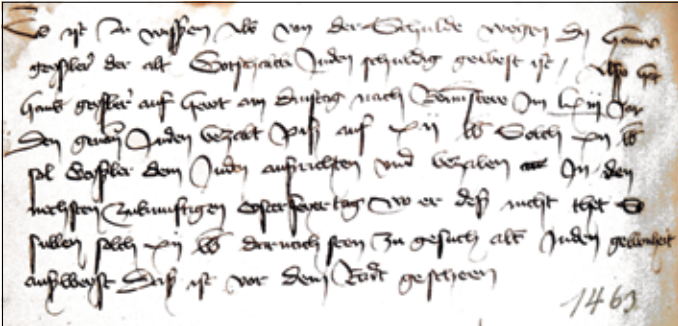 Es ist zu wissen als von der Schulde wegen dy Hanns
geißler der alt Gotschalk Juden schuldig gewest ist / Also hat
Hans geißler auf Hewt am dinstag nach Reminiscere Im lxiii Jar
den genanten Juden bezalt biß auf xii lb Solch xii lb
sol Geißler dem Juden außrichten und bezalen In den
nechsten zukunftigen osterfeyertag Wo er deß nicht thet So
sullen solch xii lb dornoch steen zu gesuch als Juden gewonheit
außweyst Daß ist vor dem Radt gescheen
1463